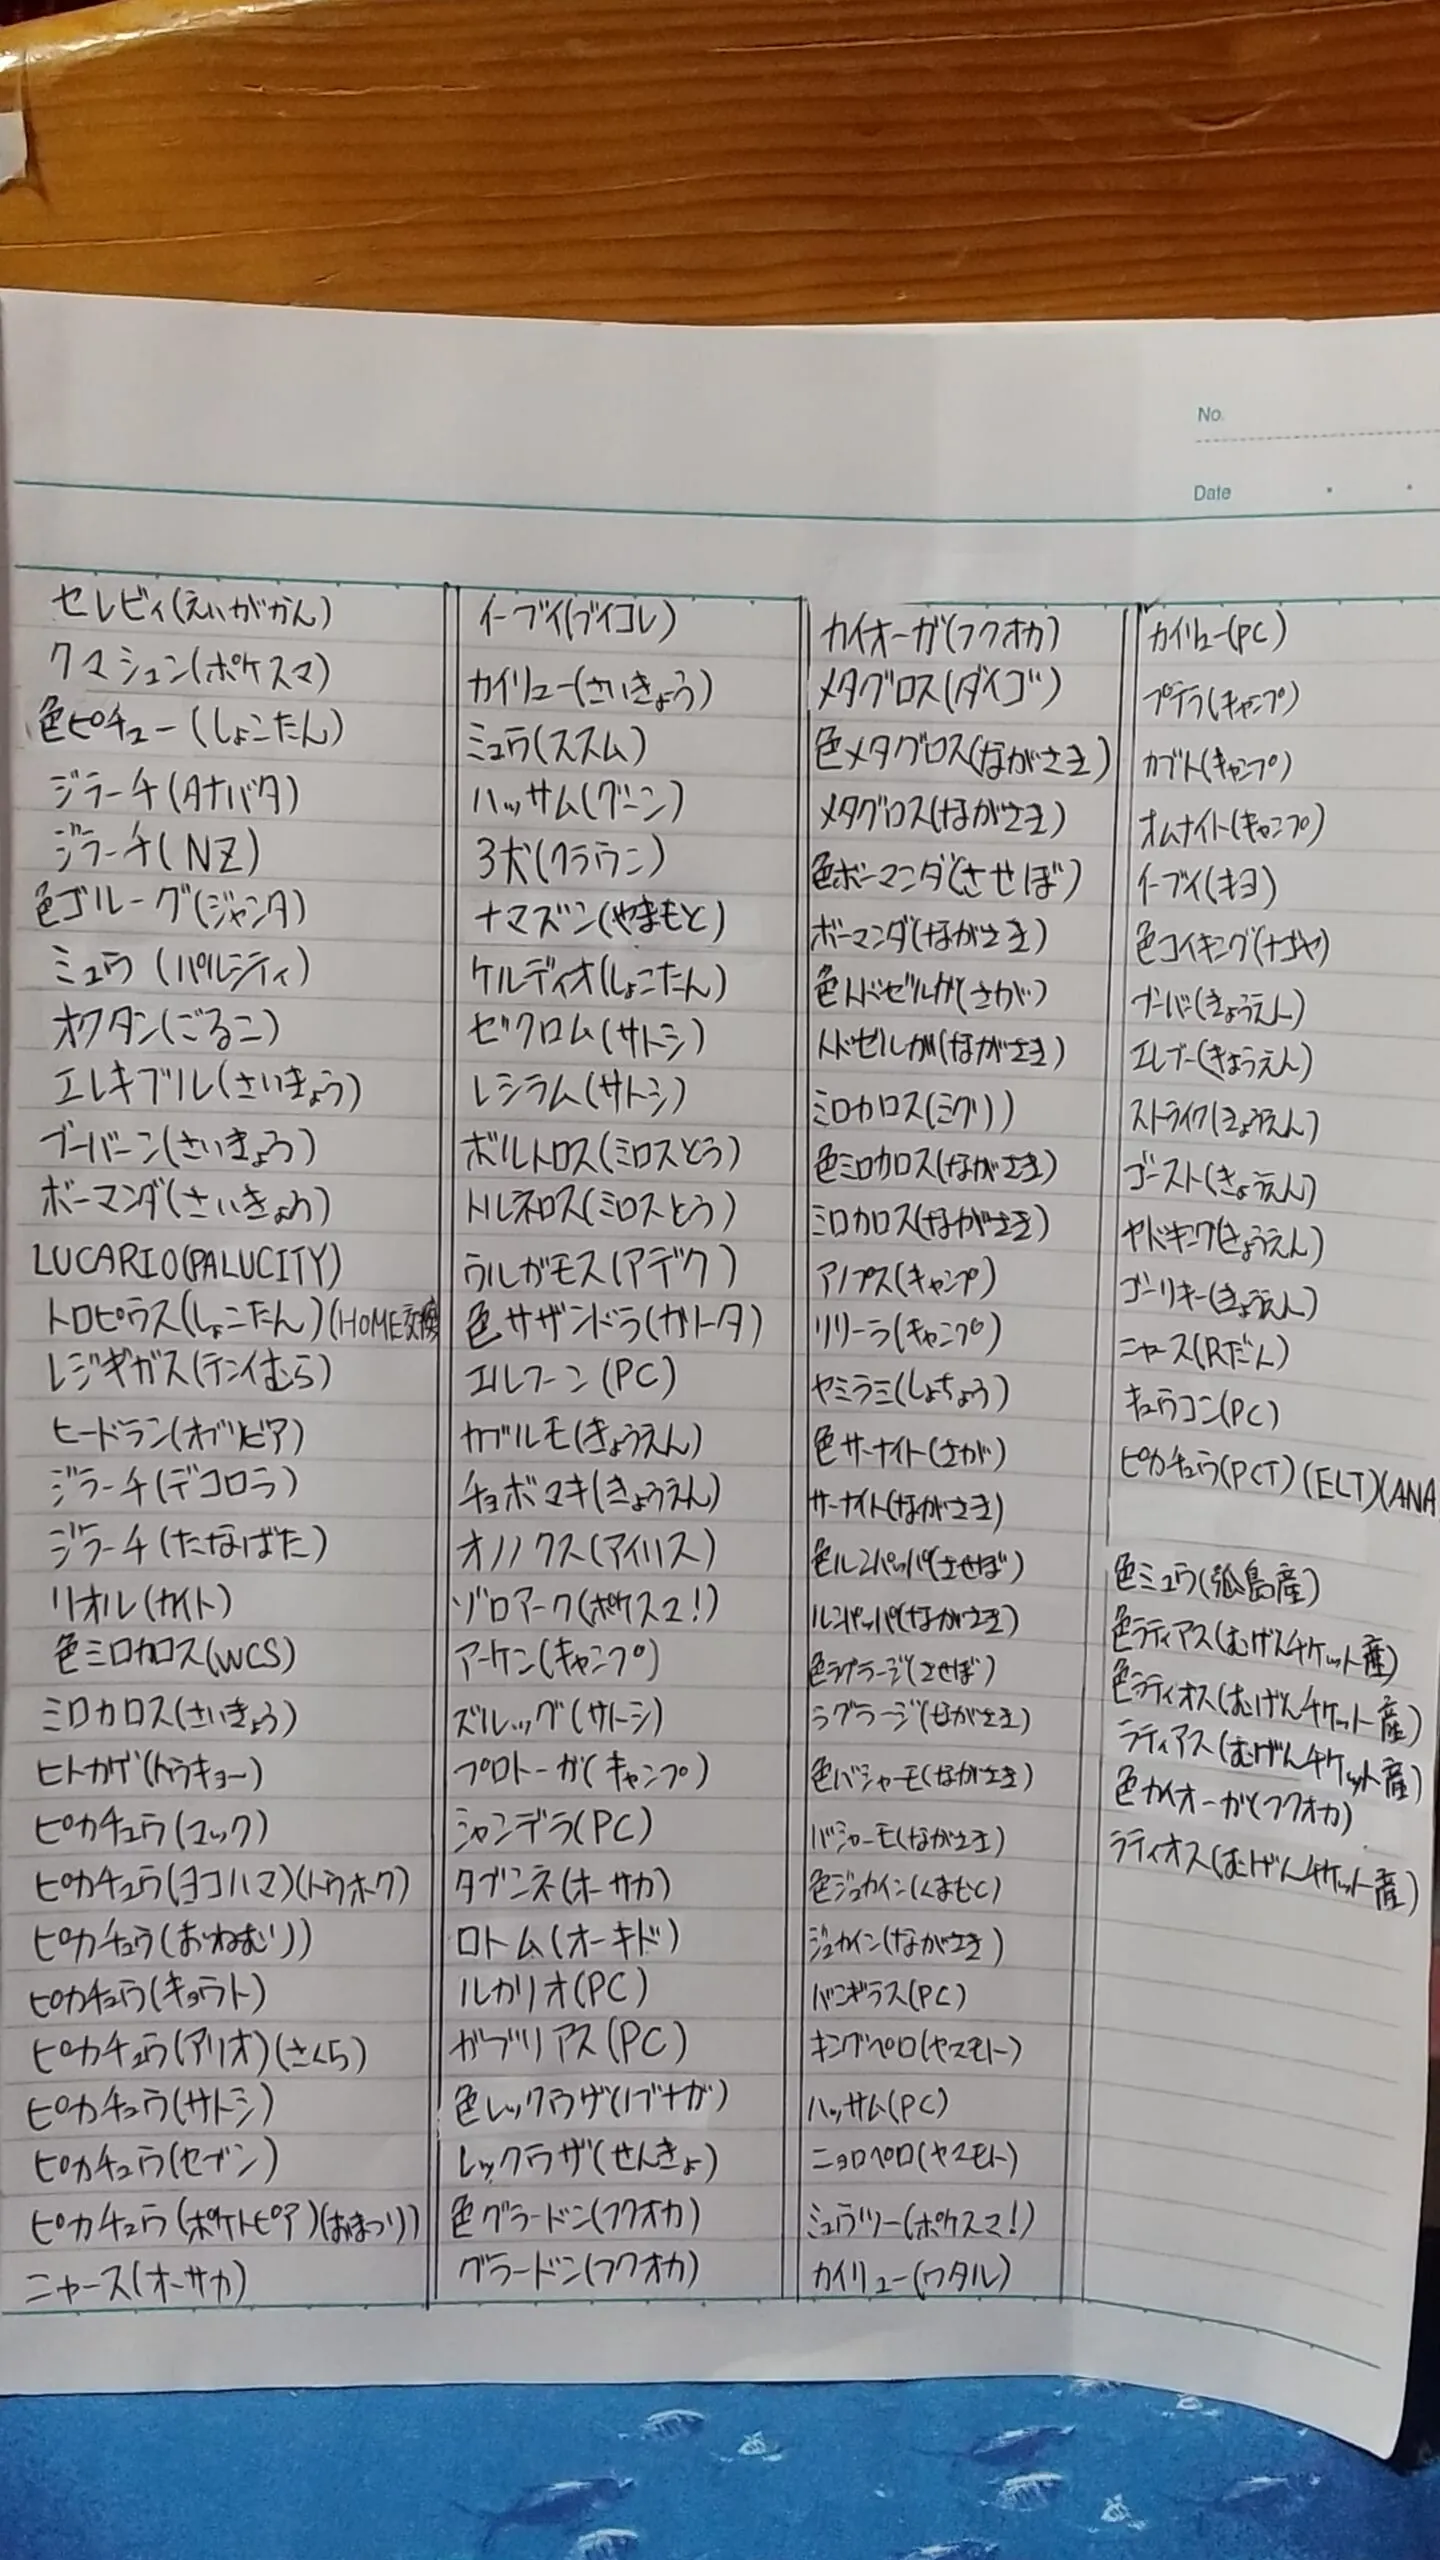 No.
Date
セレビィ(えいがかん)
クマシュン(ポケスマ)
色ピチュー(しょこたん)
ジラーチ(タナバタ)
ジラーチ(NZ)
色ゴルーグ(ジャンタ)
ミュウ(パルシティ)
オクタン(ごるこ)
エレキブル(さいきょう)
ブーバーン(さいきょう)
ボーマンダ(さいきょう)
LUCARIO(PALUCITY)
トロピウス(しょこたん)(HOME交換
レジギガス(テンイむら)
ヒードラン(オブリビア)
ジラーチ(デコロラ)
ジラーチ(たなばた)
リオル(カイト)
色ミロカロス(WCS)
ミロカロス(さいきょう)
ヒトカゲ(トウキョー)
ピカチュウ(マック)
ピカチュウ(ヨコハマ)(トウホク)
ピカチュウ(おねむり)
ピカチュウ(キョウト)
ピカチュウ(アリオ)(さくら)
ピカチュウ(サトシ)
ピカチュウ(セブン)
ピカチュウ(ポケトピア)(おまつり)
ニャース(オーサカ)
イーブイ(ブイコレ)
カイリュー(さいきょう)
ミュウ(ススム)
ハッサム(グーン)
3犬(クラウン)
ナマズン(やまもと)
ケルディオ(しょこたん)
ゼクロム(サトシ)
レシラム(サトシ)
ボルトロス(ミロスとう)
トルネロス(ミロスとう)
ウルガモス(アデク)
色サザンドラ(ガトータ)
エルフーン(PC)
カブルモ(きょうえん)
チョボマキ(きょうえん)
オノノクス(アイリス)
ゾロアーク(ポケスマ!)
アーケン(キャンプ)
ズルッグ(サトシ)
プロトーガ(キャンプ)
シャンデラ(PC)
タブンネ(オーサカ)
ロトム(オーキド)
ルカリオ(PC)
ガブリアス(PC)
色レックウザ(ノブナガ)
レックウザ(せんきょ)
色グラードン(フクオカ)
グラードン(フクオカ)
カイオーガ(フクオカ)
メタグロス(ダイゴ)
色メタグロス(ながさき)
メタグロス(ながさき)
色ボーマンダ(させぼ)
ボーマンダ(ながさき)
色トドゼルガ(さが)
トドゼルガ(ながさき)
ミロカロス(ミクリ)
色ミロカロス(ながさき)
ミロカロス(ながさき)
アノプス(キャンプ)
リリーラ(キャンプ)
ヤミラミ(しょちょう)
色サーナイト(さが)
サーナイト(ながさき)
色ルンパッパ(させぼ)
ルンパッパ(ながさき)
色ラグラージ(させぼ)
ラグラージ(ながさき)
色バシャーモ(ながさき)
バシャーモ(ながさき)
色ジュカイン(くまもと)
ジュカイン(ながさき)
バンギラス(PC)
キングペロ(ヤスモト)
ハッサム(PC)
ニョロペロ(ヤスモト)
ミュウツー(ポケスマ!)
カイリュー(ワタル)
カイリュー(PC)
プテラ(キャンプ)
カブト(キャンプ)
オムナイト(キャンプ)
イーブイ(キヨ)
色コイキング(ナゴヤ)
ブーバー(きょうえん)
エレブー(きょうえん)
ストライク(きょうえん)
ゴースト(きょうえん)
ヤドキング(きょうえん)
ゴーリキー(きょうえん)
ニャース(Rだん)
キュウコン(PC)
ピカチュウ(PCT)(ELT)(ANA
色ミュウ(孤島産)
色ラティアス(むげんチケット産)
色ラティオス(むげんチケット産)
ラティアス(むげんチケット産)
色カイオーガ(フクオカ)
ラティオス(むげんチケット産)